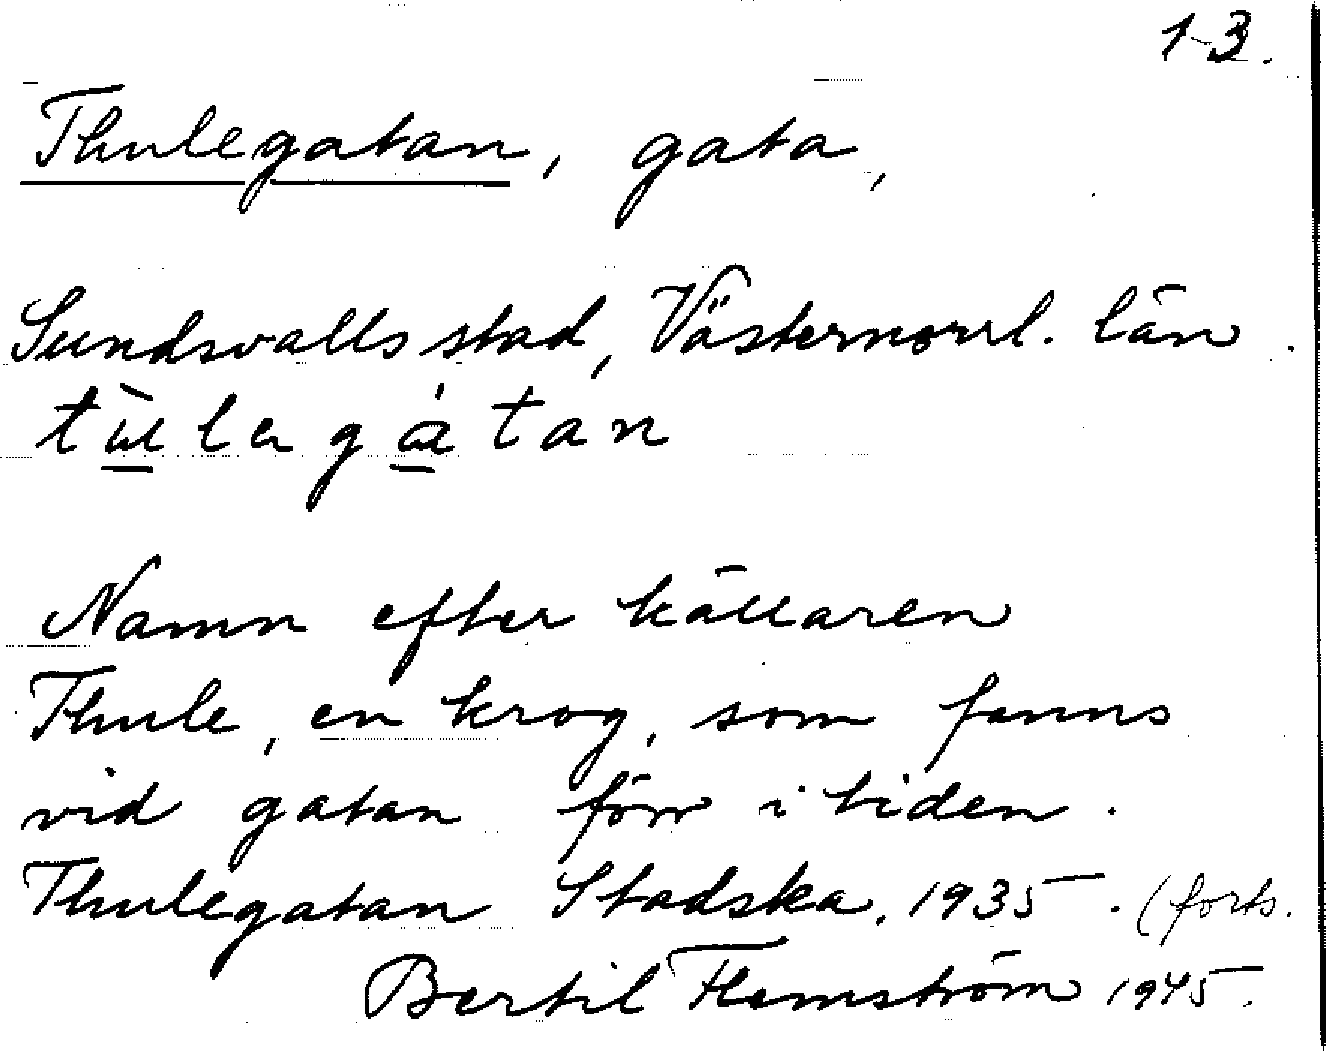 1-3.
Thulegatan, gata,
Sundsvalls stad, Västernorrl. län.
Namn efter källaren
Thule, en krog, som fanns
vid gatan förr i tiden.
Thulegatan Stadska. 1935. (forts.
Bertil Flemström 1945.